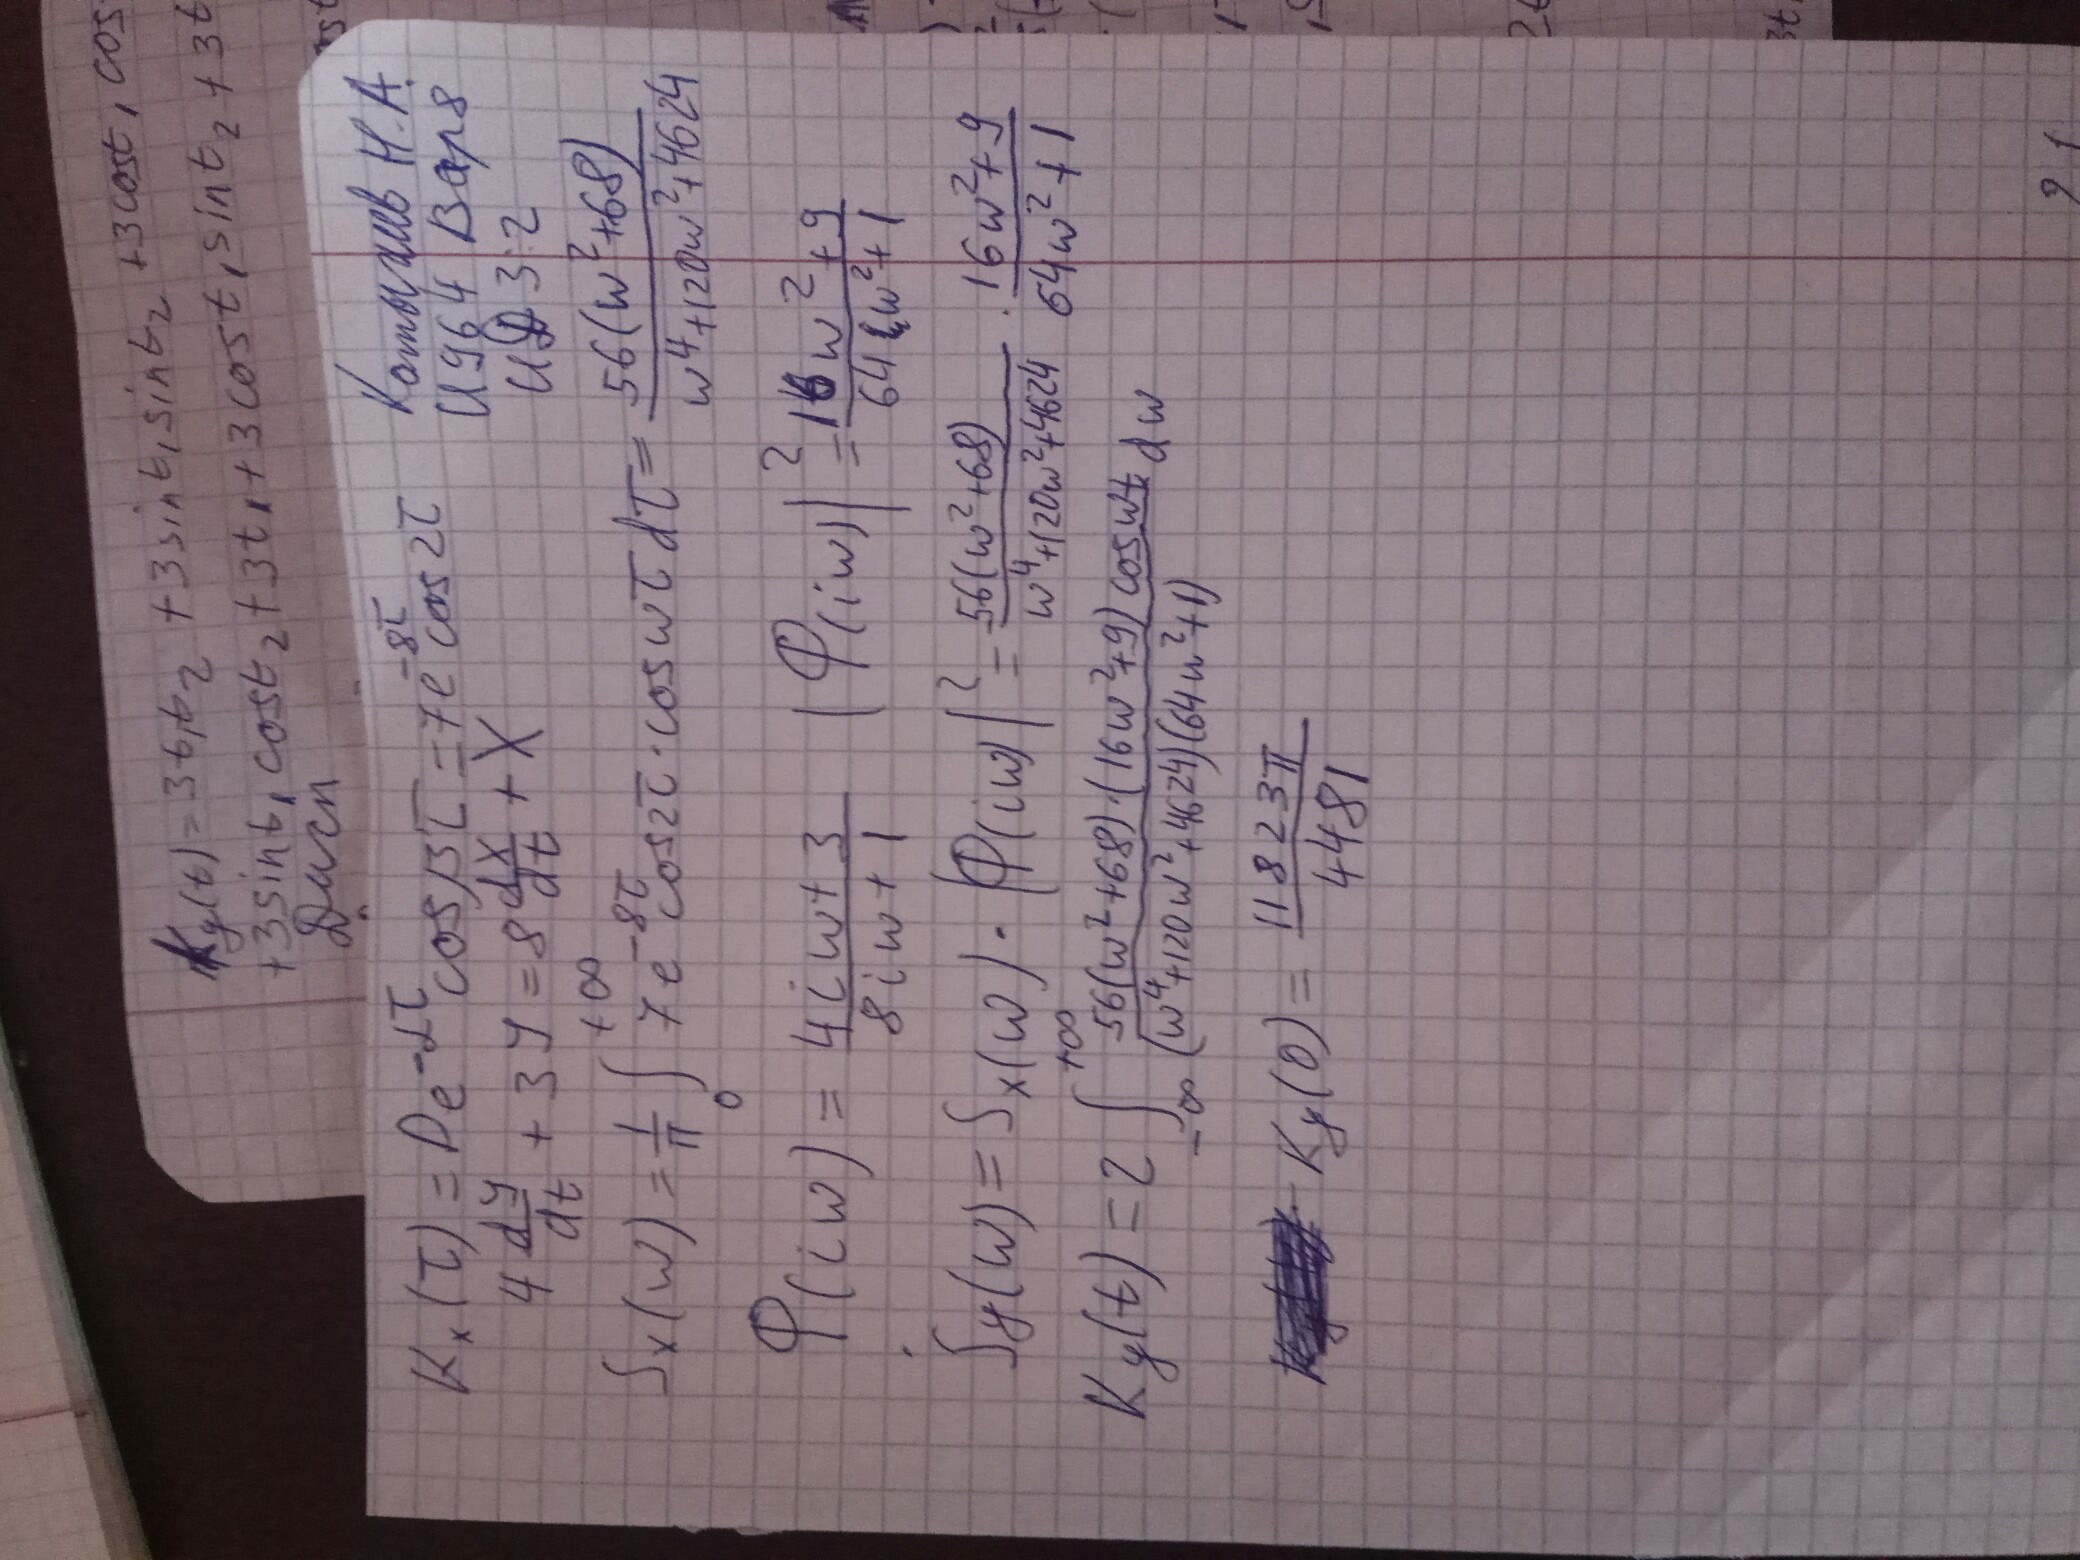 +3cost₁cos
Ky(t)=3t₁t₂+3sint₁sint₂
+3sint₁cost₂+3t₁+3cost₁sint₂+3t
Дисп
И964 Вар 8
ИДЗ.2
Kx(τ)=De^-ατ cosβτ=7e^-8τ cos2τ
4 dy/dt + 3y = 8 dx/dt + X
Sx(w)=1/π ∫₀^+∞ 7e^-8τ cos2τ·cosωτdτ= 56(w²+68)/(w⁴+120w²+4624)
Φ(iw)= (4iw+3)/(8iw+1) |Φ(iw)|²= (16w²+9)/(64w²+1)
Sy(w)=Sx(w)·|Φ(iw)|²= 56(w²+68)/(w⁴+120w²+4624) · (16w²+9)/(64w²+1)
Ky(t)=2 ∫₋∞^+∞ 56(w²+68)·(16w²+9)coswt/((w⁴+120w²+4624)(64w²+1)) dw
Ky(0)= 11823π/4481